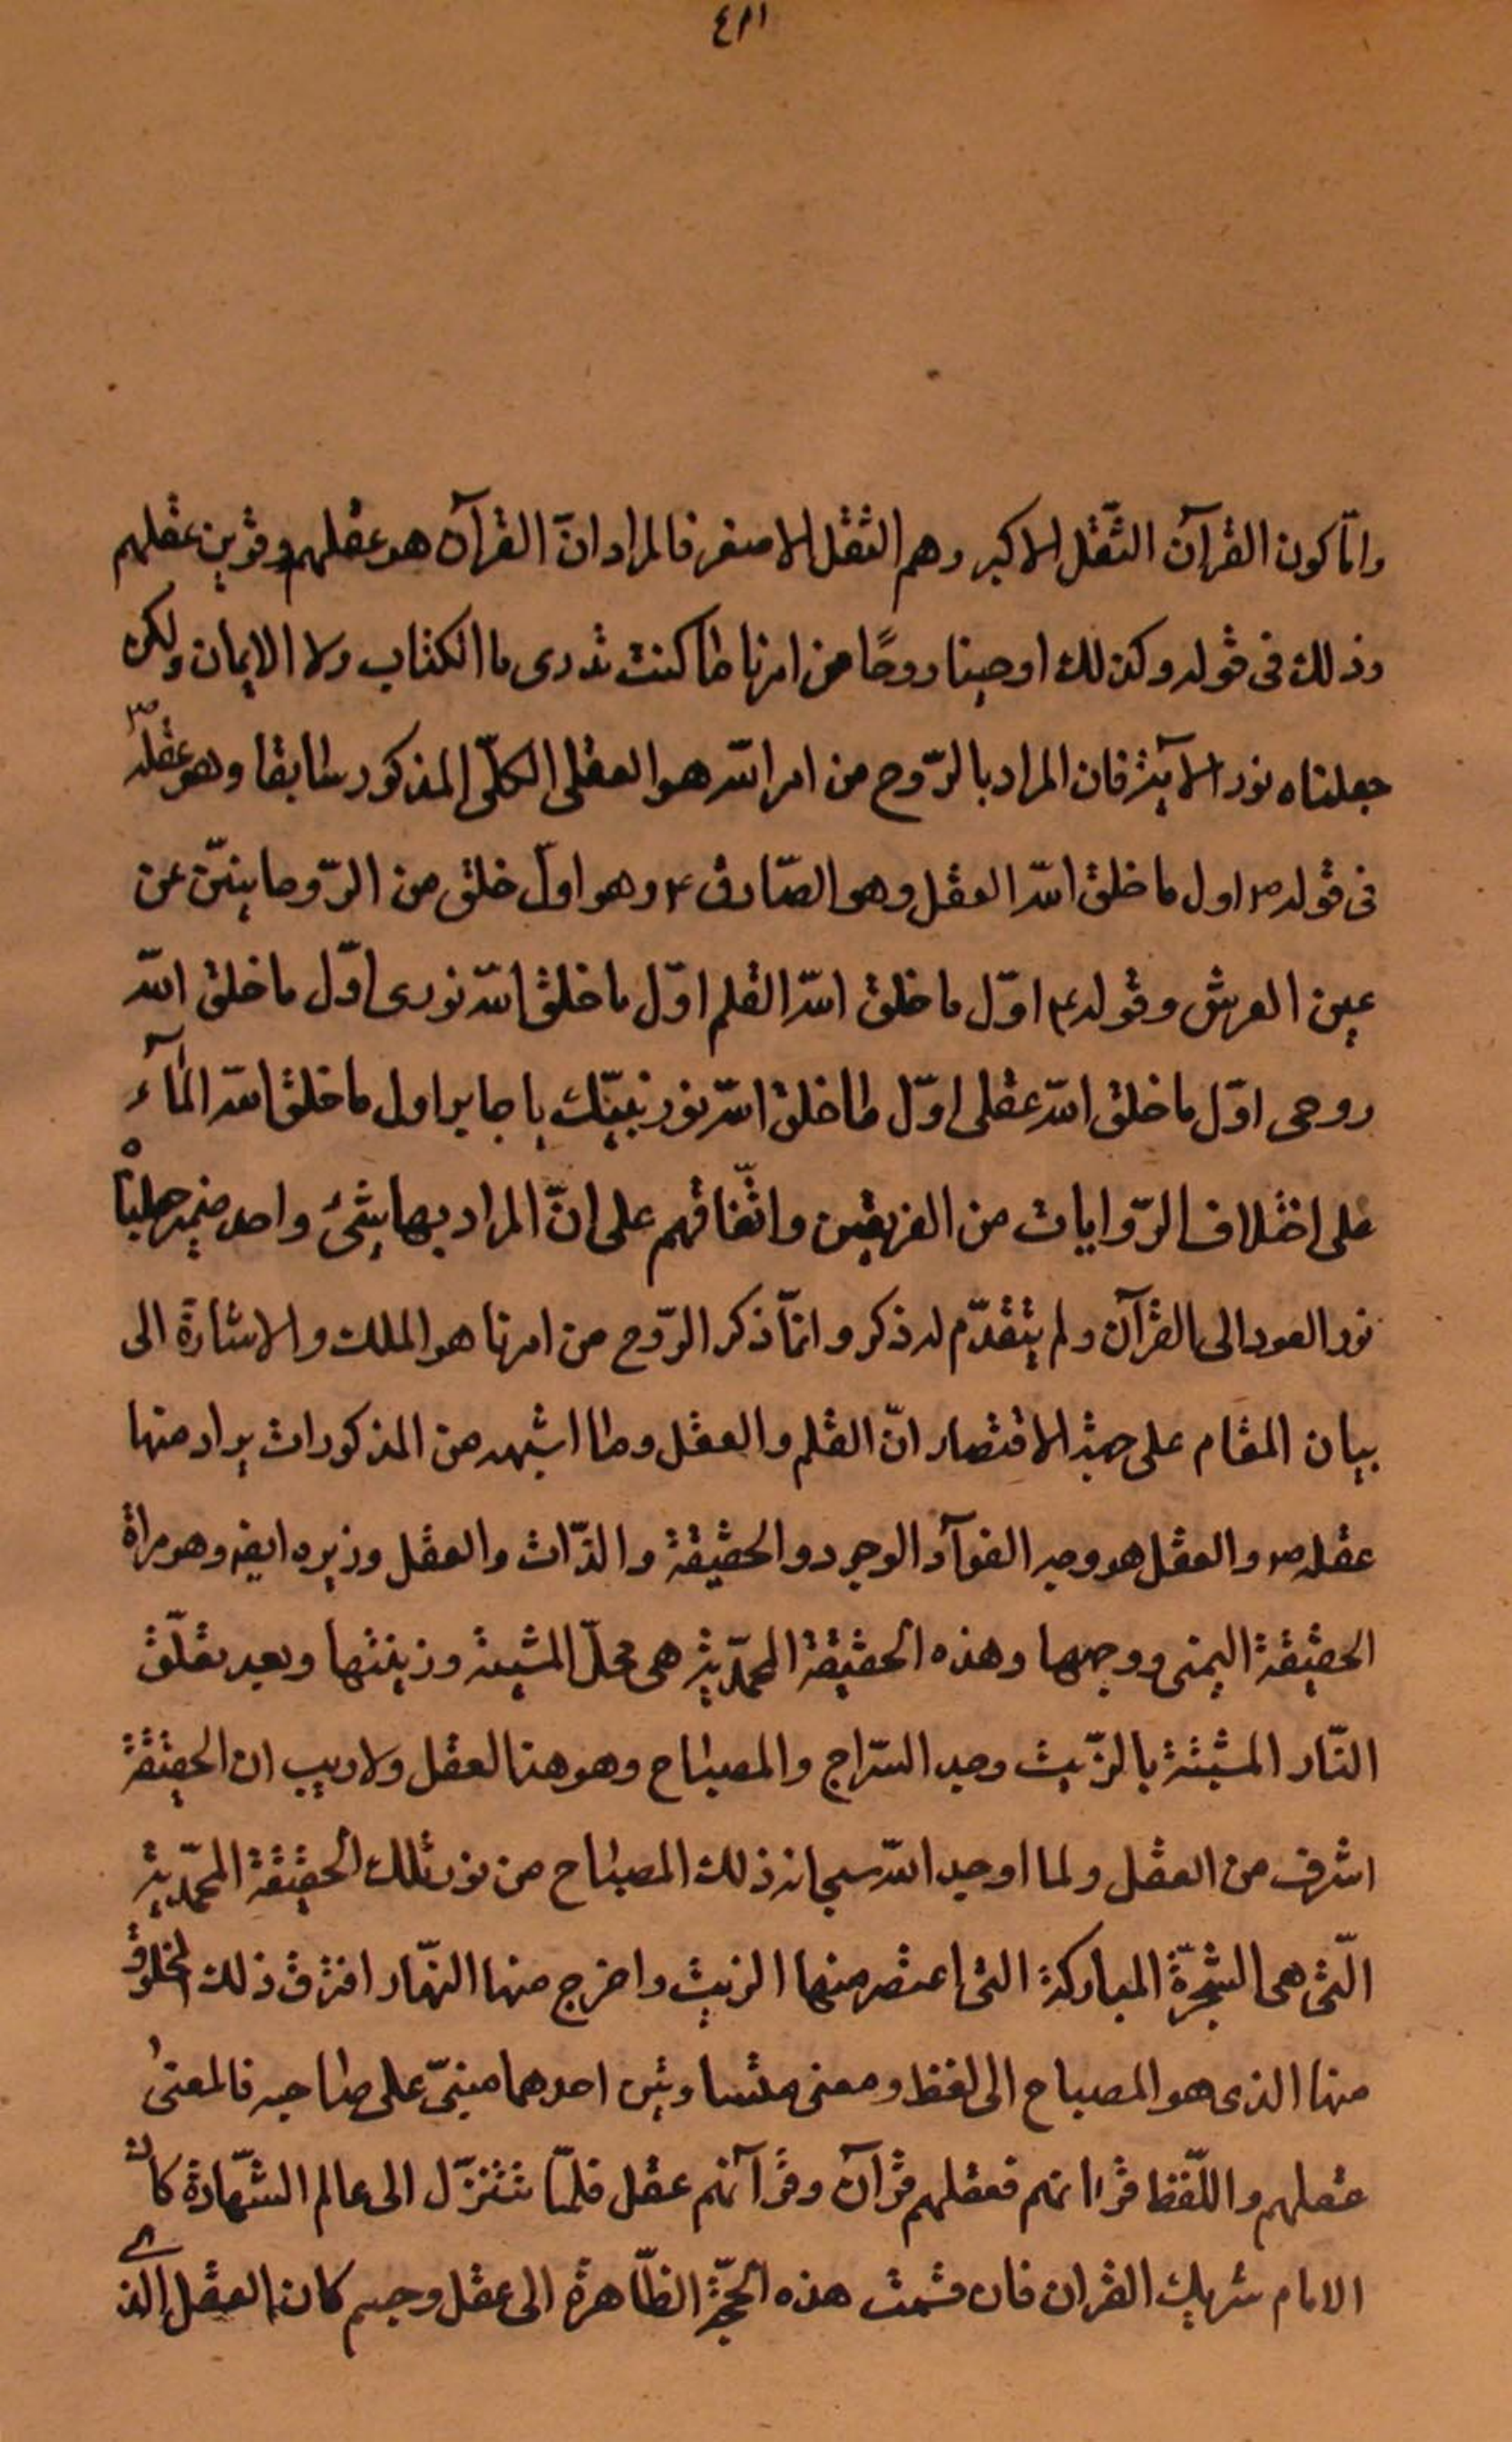 ٤٢١
وامّا كون القرآن الثّقل الاكبر وهم الثقل الاصغر فالمراد انّ القرآن هو عقلهم وقرين عقلهم
وذلك فى قوله وكذلك اوحينا روحًا من امرنا ما كنت تدرى ما الكتاب ولا الايمان ولكن
جعلناه نورا الآية فان المراد بالرّوح من امر الله هو العقل الكلّى المذكور سابقا وهو عقله ص
فى قوله ص اول ما خلق الله العقل وهو الصّادق ع وهو اول خلق من الرّوحانيّين عن
يمين العرش وقوله ع اوّل ما خلق الله القلم اوّل ما خلق الله نورى اوّل ما خلق الله
روحى اوّل ما خلق الله عقلى اوّل ما خلق الله نور نبيّك يا جابر اول ما خلق الله المآء
على اختلاف الرّوايات من الفريقين واتّفاقهم على انّ المراد بها شئ واحد ضمير جعلناه
نور العود الى القرآن ولم يتقدّم له ذكر وانمّا ذكر الرّوح من امرنا هو الملك والاشارة الى
بيان المقام على جهة الاقتصار انّ القلم والعقل وما اشبهه من المذكورات يراد منها
عقله ص والعقل هو وجه الفوآد الوجود والحقيقة والذّات والعقل وزيره ايضا وهو مراة
الحقيقة اليمنى ووجهها وهذه الحقيقة المحمّديّة هى محلّ المشية وزيتها وبعد تعلّق
النّار المشية بالزّيت وجد السّراج والمصباح وهو هنا العقل ولا ريب ان الحقيقة
اشرف من العقل ولما اوجد الله سبحانه ذلك المصباح من نور تلك الحقيقة المحمّديّة
الّتى هى الشّجرة المباركة التى اعتصر منها الزيت واخرج منها النّهار افترق ذلك المخلوق
منها الذى هو المصباح الى لفظ ومعنى متساويين احدهما مبنىّ على صاحبه فالمعنى
عقلهم واللّفظ قرانهم فعقلهم قرآن وقرآنهم عقل فلمّا تنزّل الى عالم الشّهادة كان
الامام شريك القران فان قسمت هذه الحجّة الظّاهرة الى عقل وجسم كان العقل الذى